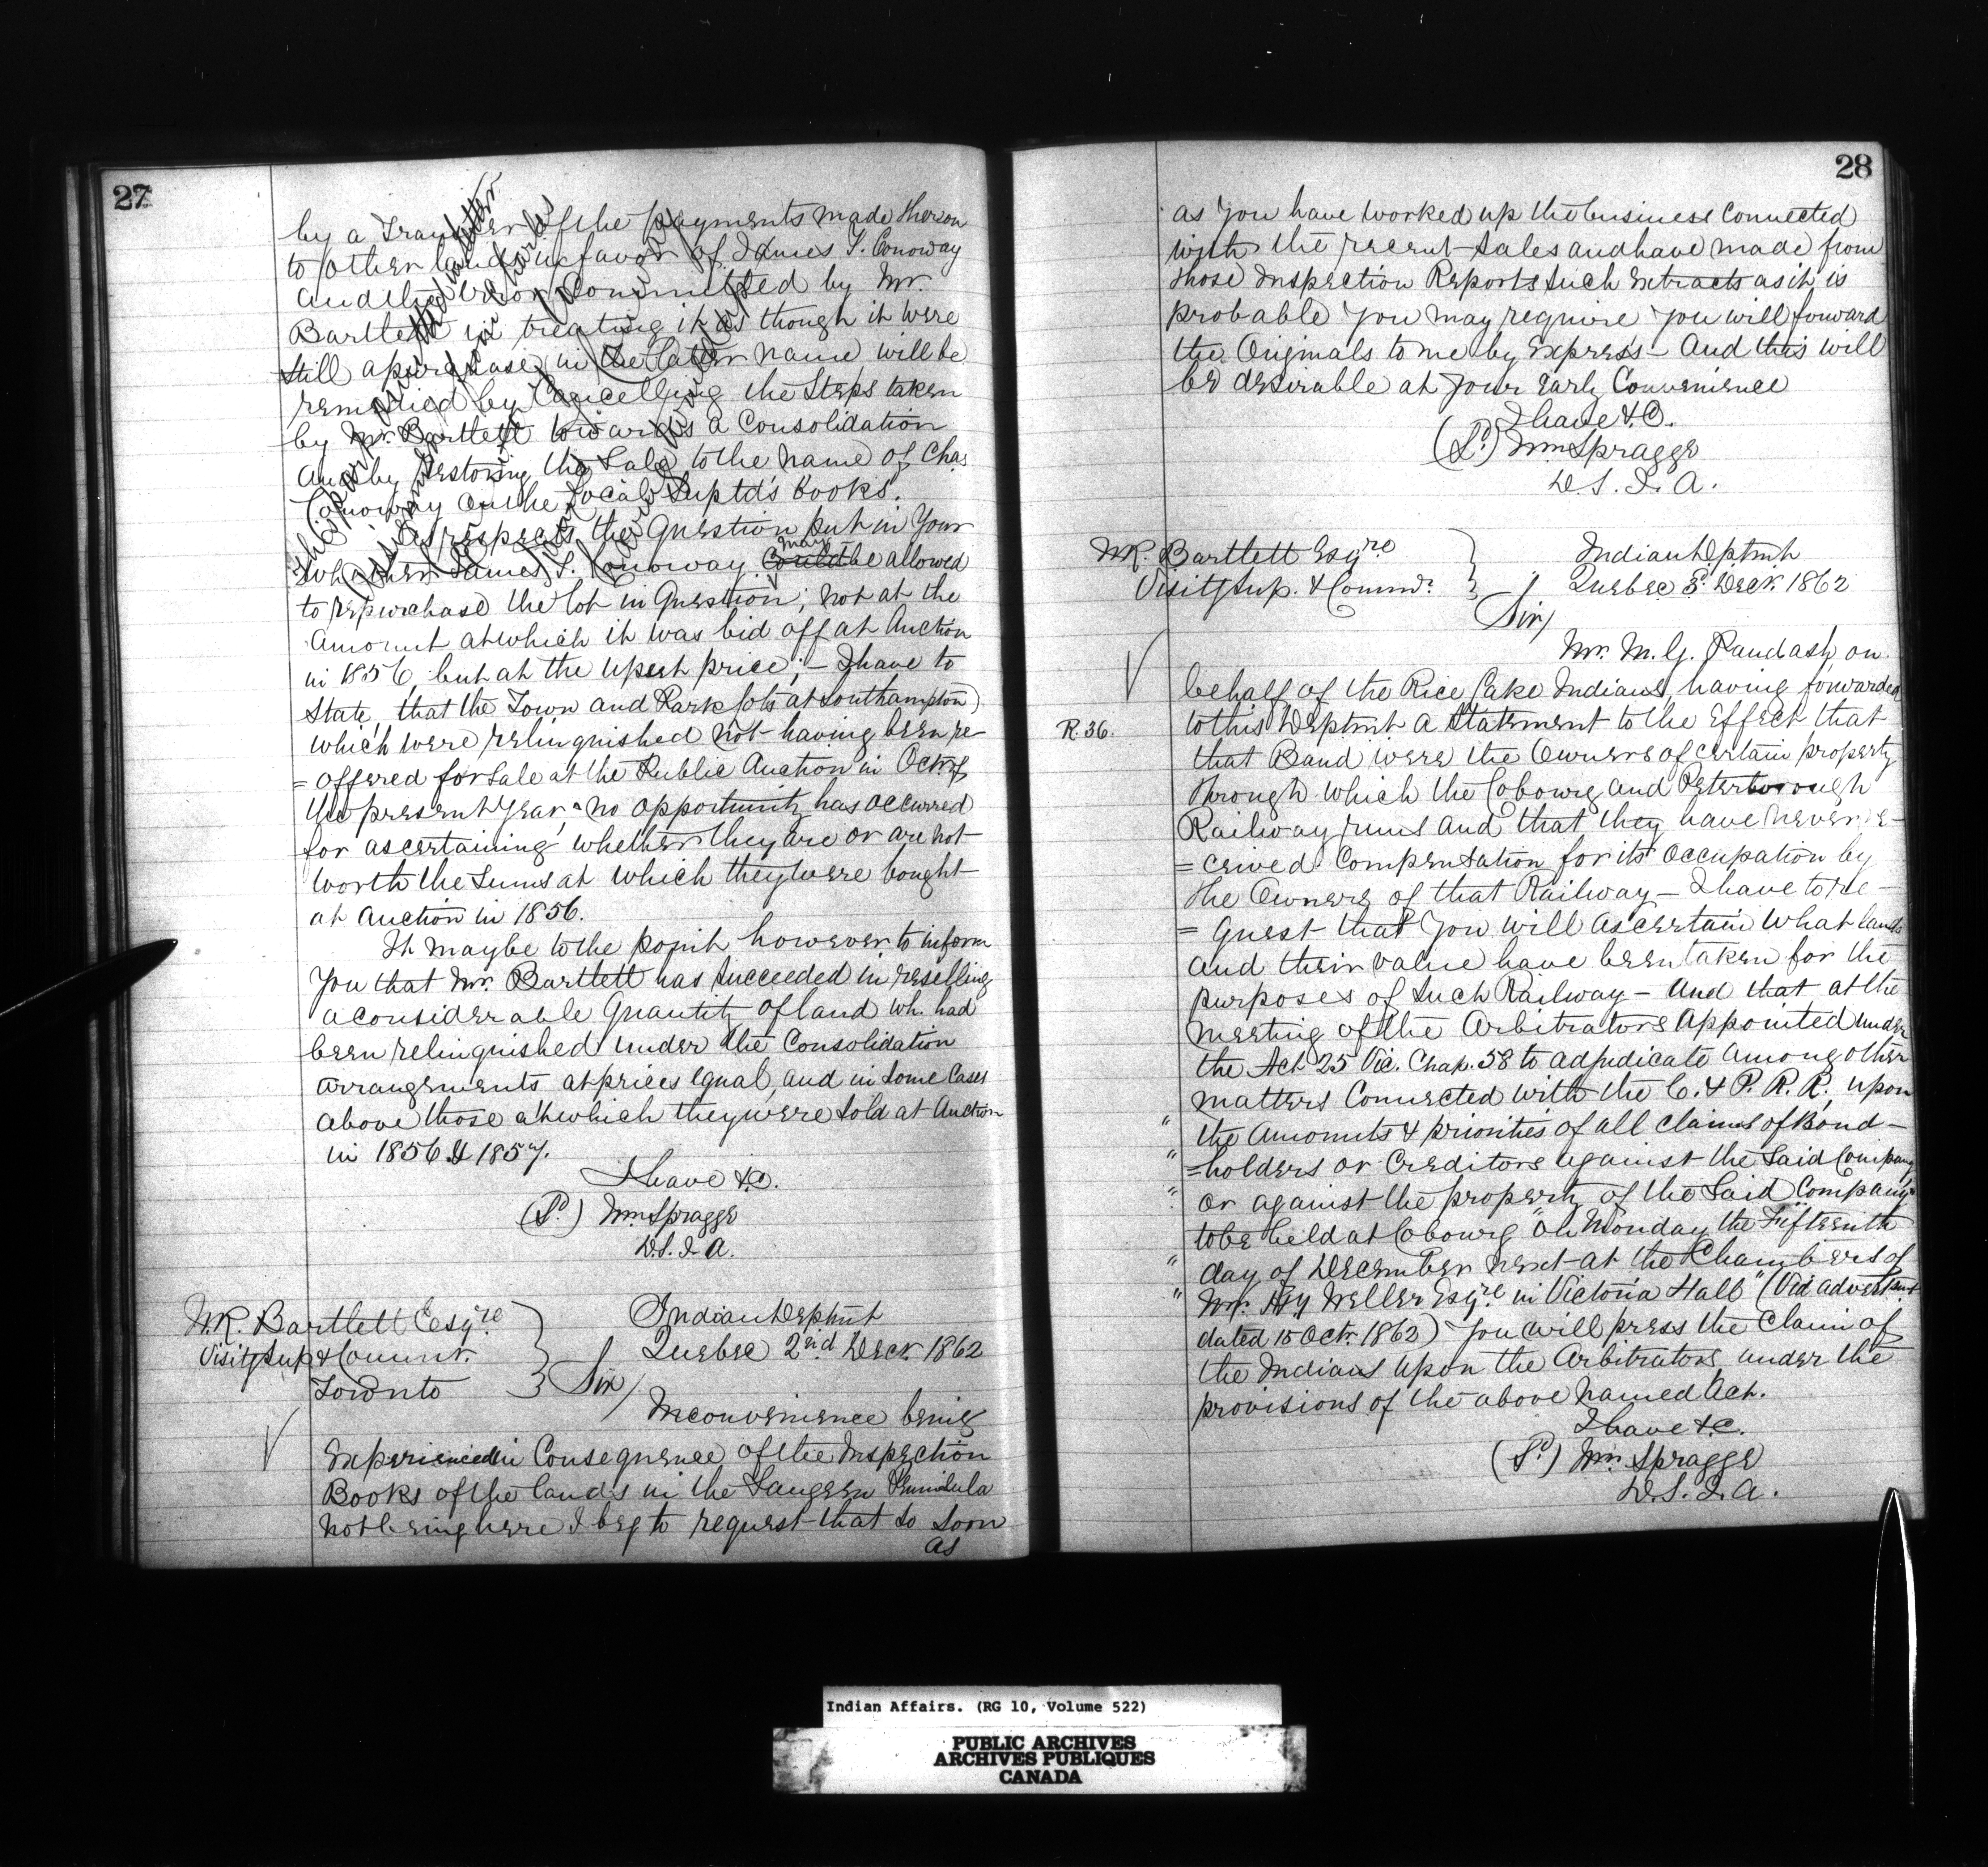 27
by a Transfer of the payments made thereon
to other lands in favor of James T. Conoway
and the error Committed by Mr.
Bartlett in treating it as though it were
still a purchase in the latter name will be
remedied by Cancelling the Steps taken
by Mr. Bartlett towards a Consolidation
and by restoring the Sale to the name of Chas
Conoway on the Local Suptd's books.
As respects the Question put in Your
whether James T. Conoway may could be allowed
to repurchase the lot in Question; not at the
Amount at which it was bid off at Auction
in 1856, but at the upset price; – I have to
State, that the Town and Park lots at Southampton
which were relinquished not having been re-
=offered for Sale at the Public Auction in Octr of
the present Year, no opportunity has occurred
for ascertaining whether they are or are not
worth the Sums at which they were bought
at Auction in 1856.
It may be to the point however to inform
You that Mr. Bartlett has Succeeded in reselling
a considerable Quantity of land wh. had
been relinquished under the Consolidation
arrangements at prices equal, and in Some Cases
above those at which they were Sold at Auction
in 1856 & 1857.
I have &c.
(Sd) Wm Spragge
D.S.I.A.
W.R. Bartlett Esqre
Visitg Sup. & Commr.
Toronto
Indian Deptmt
Quebec 2nd Decr. 1862
Sir/
Inconvenience being
Experienced in Consequence of the Inspection
Books of the lands in the Saugeen Peninsula
not being here I beg to request that So Soon
as
28
as You have worked up the business Connected
with the recent Sales and have made from
those Inspection Reports Such Extracts as it is
probable You may require You will forward
the Originals to me by Express – And this will
be desirable at Your Early Convenience
I have &c.
(Sd) Wm Spragge
D.S.I.A.
W.R. Bartlett Esqre
Visitg Sup. & Commr.
Indian Deptmt
Quebec 3d Decr. 1862
Sir/
Mr. M. G. Paudash, on
behalf of the Rice Lake Indians, having forwarded
R. 36.
to this Deptmt a Statement to the Effect that
that Band were the Owners of Certain property
through which the Cobourg and Peterborough
Railway runs and that they have never re-
=ceived Compensation for its Occupation by
the Owners of that Railway – I have to re-
=quest that You will ascertain What lands
and their value have been taken for the
purposes of Such Railway – And that at the
Meeting of the Arbitrators Appointed under
the Act 25 Vic. Chap. 58 to adjudicate among other
matters Connected with the C. & P. R. R. upon
" the Amounts & priorities of all Claims of Bond-
" =holders or Creditors against the Said Company
" or against the property of the Said Company"
to be held at Cobourg "On Monday the Fifteenth
" day of December next at the Chambers of
" Mr. Hy Weller Esqre in Victoria Hall" (Vid Advertsmt
dated 15 Octr. 1862) You will press the Claim of
the Indians upon the Arbitrators, under the
provisions of the above Named Act.
I have &c.
(Sd) Wm Spragge
D.S.I.A.
Indian Affairs. (RG 10, Volume 522)
PUBLIC ARCHIVES
ARCHIVES PUBLIQUES
CANADA